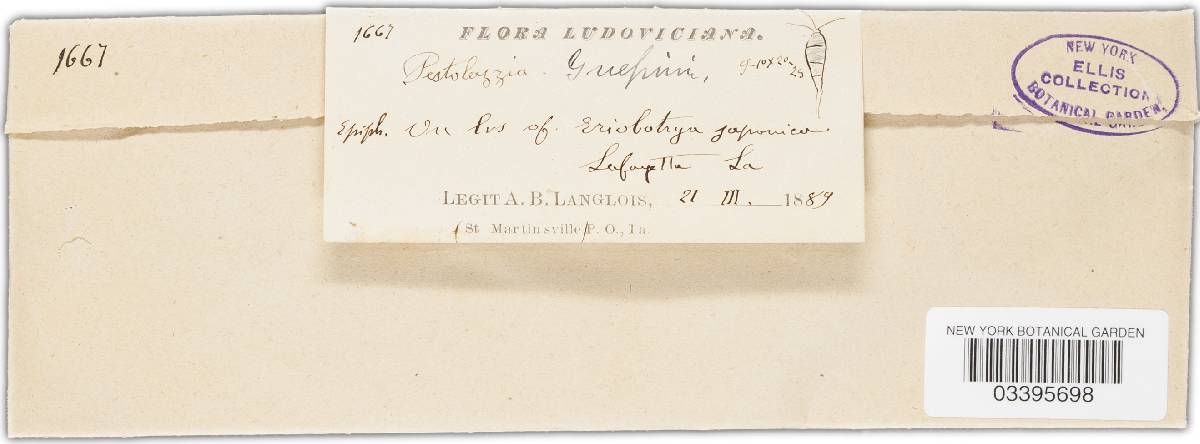 1667
1667
FLORA LUDOVICIANA.
Pestolozzia. Guepini,
9-10 x 20-25
Epiph. On lvs of. Eriobotrya japonica
Lafayette La
LEGIT A. B. LANGLOIS, 21 III. 1889
(St Martinsville) P. O., La.
NEW YORK
ELLIS
COLLECTION
BOTANICAL GARDEN.
NEW YORK BOTANICAL GARDEN
03395698